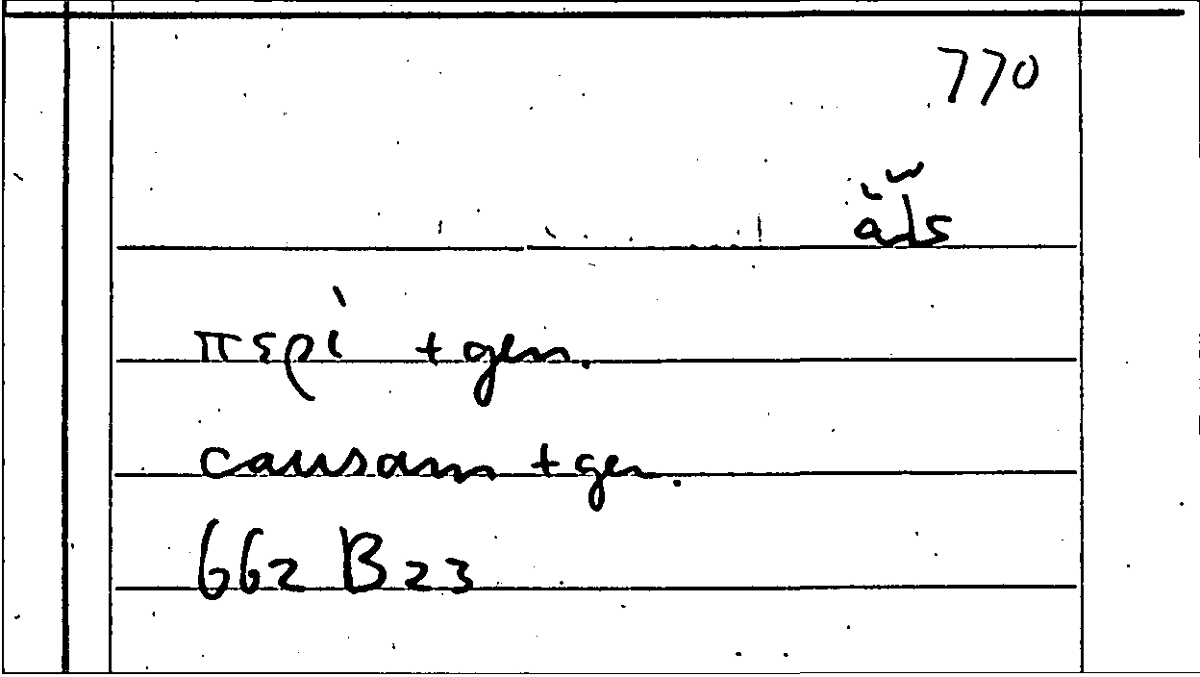 770
περὶ + gen.
causam + gen.
662 B 23